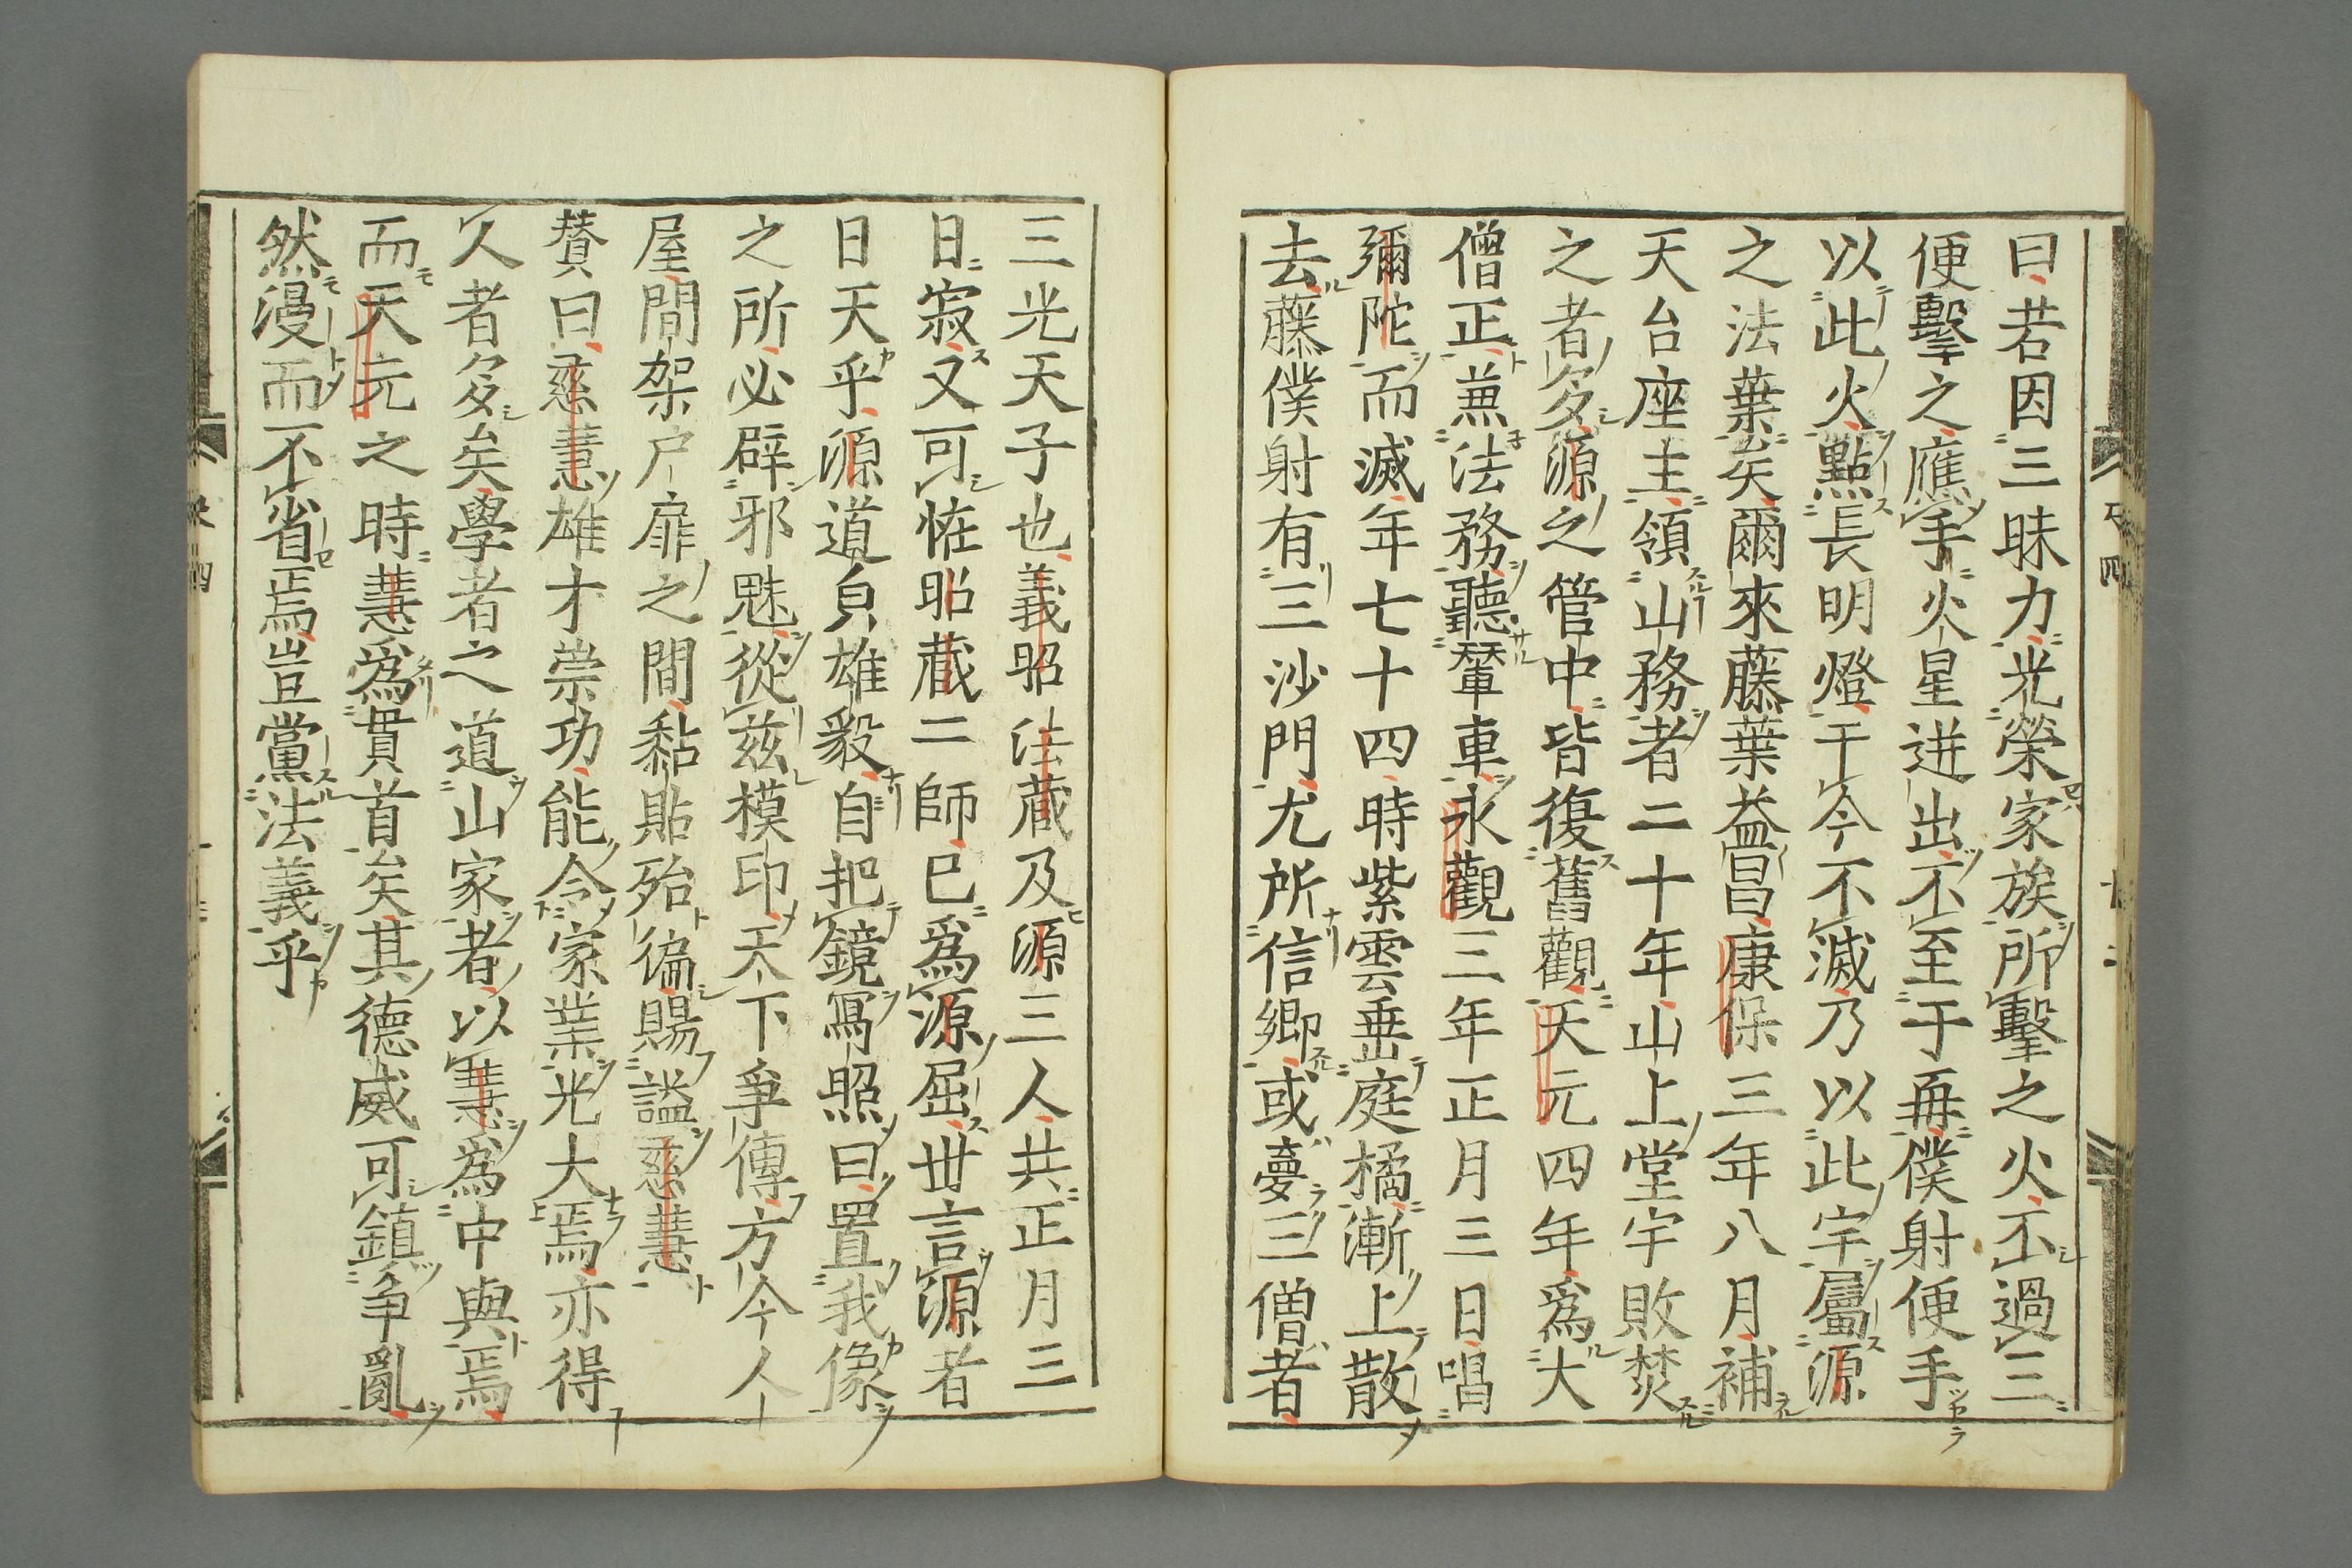 曰若因三昧力光榮家族所擊之火不過三
便擊之應手火星迸出不至于再僕射便手
以此火點長明燈于今不滅乃以此宇屬源
之法葉矣爾來藤葉益昌康保三年八月補
天台座主領山務者二十年山上堂宇敗焚
之者多源之管中皆復舊觀天元四年爲大
僧正兼法務聽輦車永觀三年正月三日唱
彌陀而滅年七十四時紫雲垂庭橘漸上散
去藤僕射有三沙門尤所信郷或夢三僧者
三光天子也義昭法藏及源三人共正月三
日寂又可恠昭藏二師已爲源屈世言源者
日天乎源道貞雄毅自把鏡寫照曰置我像
之所必辟邪魅從茲模印天下爭傳方今人
屋間架戸扉之間黏貼殆徧賜謚慈慧
賛曰慈慧雄才崇功能令家業光大焉亦得
久者多矣學者之道山家者以慧爲中與焉
而天元之時慧爲貫首矣其德威可鎮争亂
然漫而不省焉豈黨法義乎